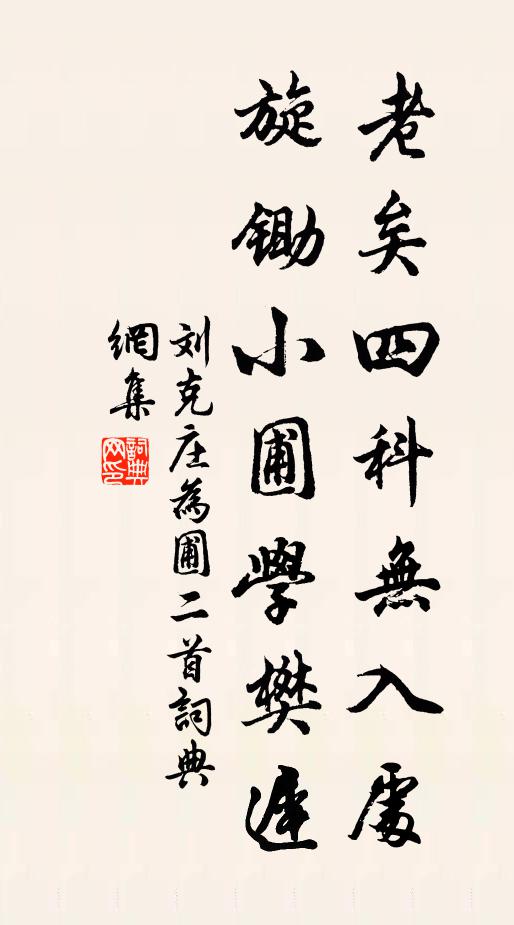 老矣四科無入處
旋鋤小圃學樊遲
刘克庄為圃二首詞典
網集
詞典網印